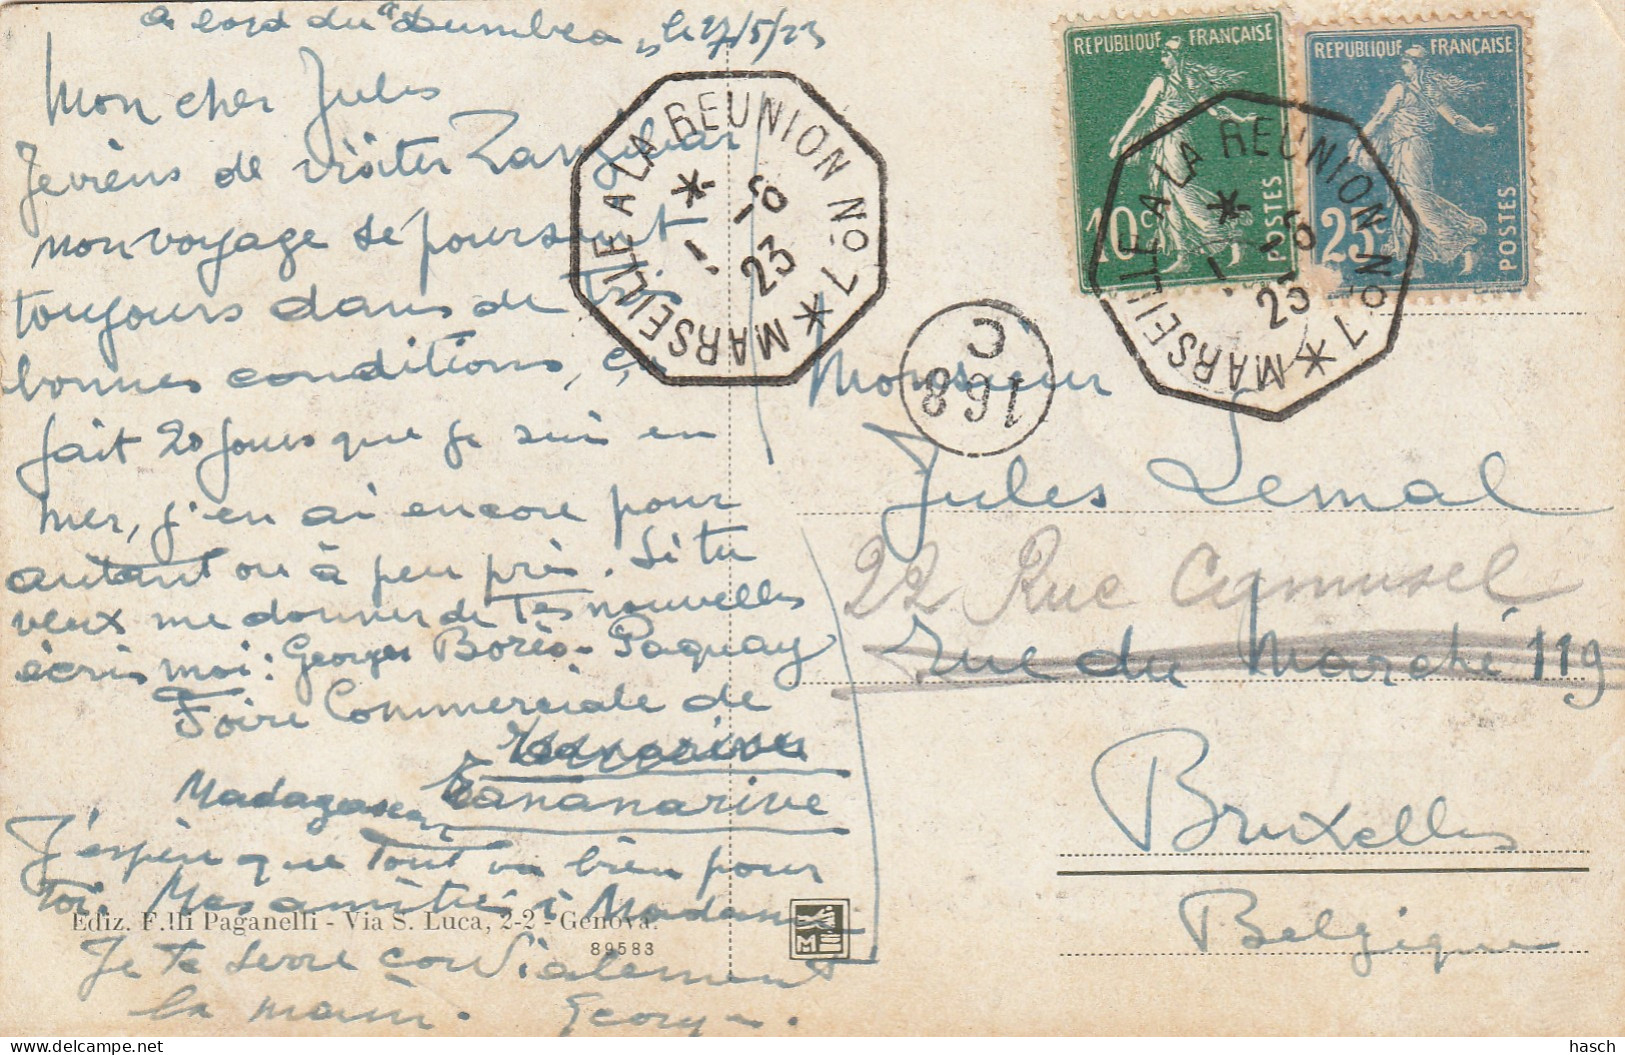 a bord du "Dumbea", le 27/5/23
Mon cher Jules
Je viens de visiter Zanzibar
mon voyage se poursuit
toujours dans de très
bonnes conditions, ça
fait 20 jours que je suis en
mer, j'en ai encore pour
autant ou à peu près. Si tu
veux me donner de tes nouvelles
écris moi: Georges Borès-Paquay
Foire Commerciale de
Tananarive
Madagascar
J'espère que tout va bien pour
toi. Mes amitiés à Madame
Je te serre cordialement
la main. Georges.
Ediz. F.lli Paganelli - Via S. Luca, 2-2 - Genova.
89583
M
REPUBLIQUE FRANÇAISE
10c POSTES
REPUBLIQUE FRANÇAISE
25c POSTES
MARSEILLE A LA REUNION No 7
1 -6 23
MARSEILLE A LA REUNION No 7
1 -6 23
168
C
Monsieur
Jules Lemal
22 Rue Camusel
Rue du Marché 119
Bruxelles
Belgique
hasch